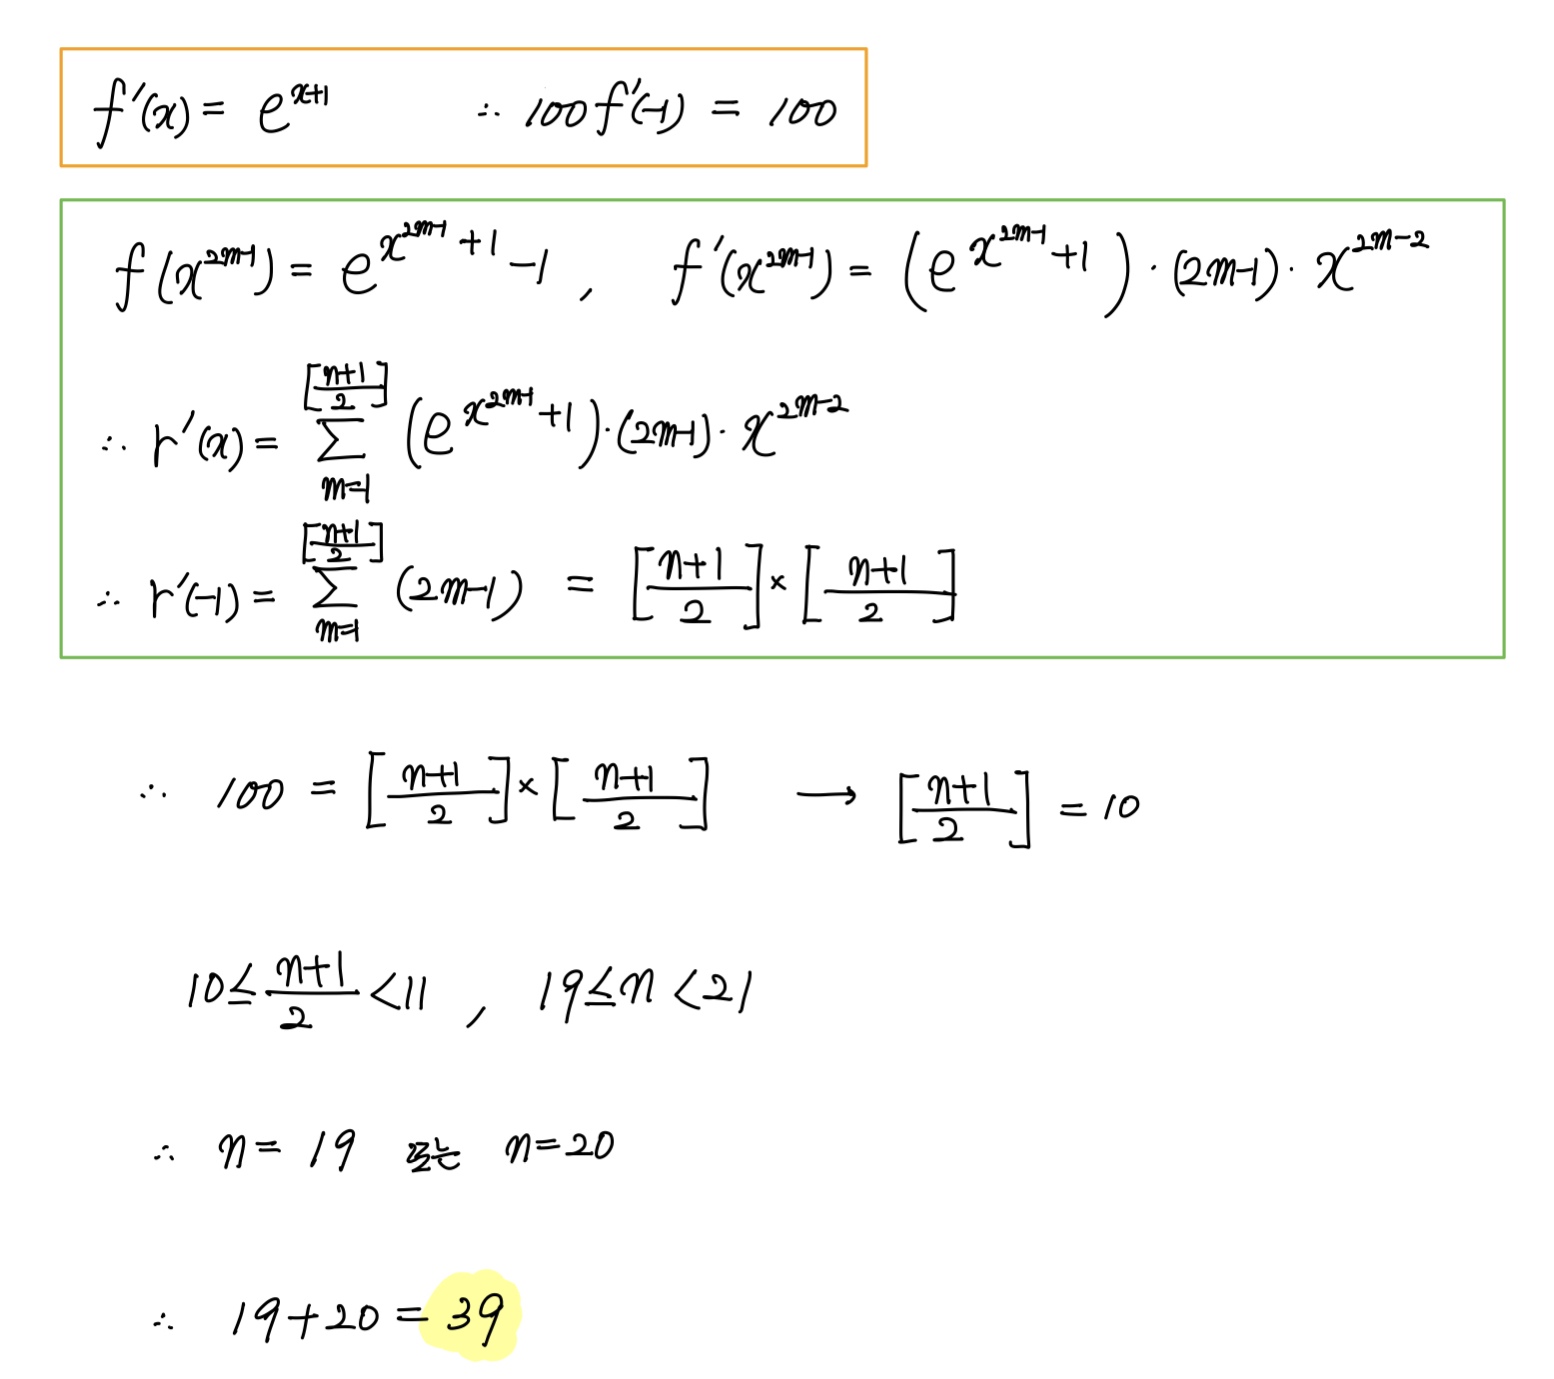 f'(x) = e^{x+1} ∴ 100f'(-1) = 100
f(x^{2m-1}) = e^{x^{2m-1}+1} - 1 , f'(x^{2m-1}) = (e^{x^{2m-1}+1}) · (2m-1) · x^{2m-2}
∴ r'(x) = \sum_{m=1}^{[\frac{n+1}{2}]} (e^{x^{2m-1}+1}) · (2m-1) · x^{2m-2}
∴ r'(-1) = \sum_{m=1}^{[\frac{n+1}{2}]} (2m-1) = [\frac{n+1}{2}] × [\frac{n+1}{2}]
∴ 100 = [\frac{n+1}{2}] × [\frac{n+1}{2}] → [\frac{n+1}{2}] = 10
10 ≤ \frac{n+1}{2} < 11 , 19 ≤ n < 21
∴ n = 19 또는 n = 20
∴ 19 + 20 = 39